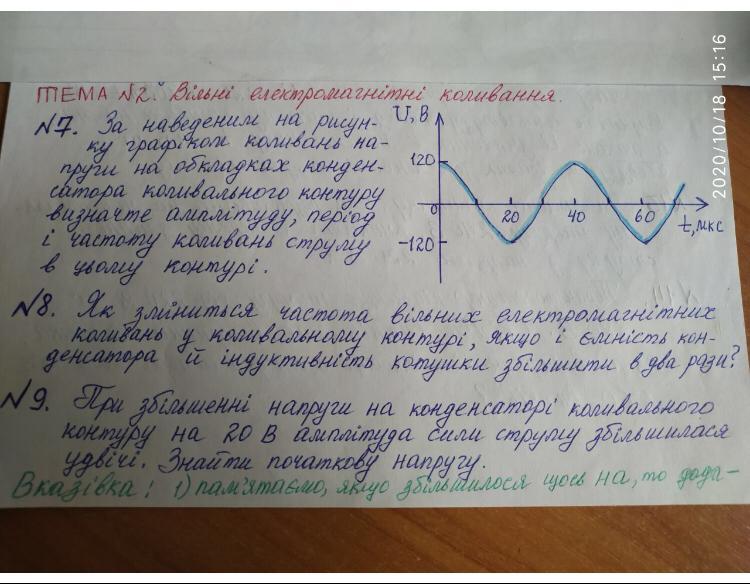 ТЕМА №2. Вільні електромагнітні коливання.
№7. За наведеним на рисун-
ку графіком коливань на-
пруги на обкладках конден-
сатора коливального контуру
визначте амплітуду, період
і частоту коливань струму
в цьому контурі.
U, В
120
0
-120
20
40
60
t, мкс
№8. Як зміниться частота вільних електромагнітних
коливань у коливальному контурі, якщо і ємність кон-
денсатора й індуктивність котушки збільшити в два рази?
№9. При збільшенні напруги на конденсаторі коливального
контуру на 20 В амплітуда сили струму збільшилася
удвічі. Знайти початкову напругу.
Вказівка: 1) пам'ятаємо, якщо збільшилося щось на, то дода-
2020/10/18 15:16